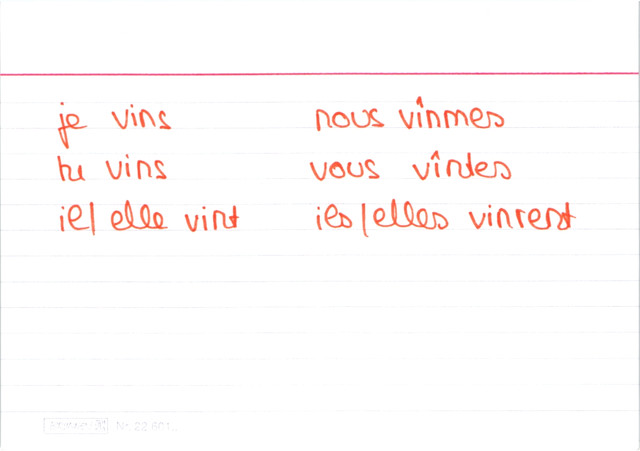 je vins nous vînmes
tu vins vous vîntes
il/elle vint ils/elles vinrent
Nr. 22 601